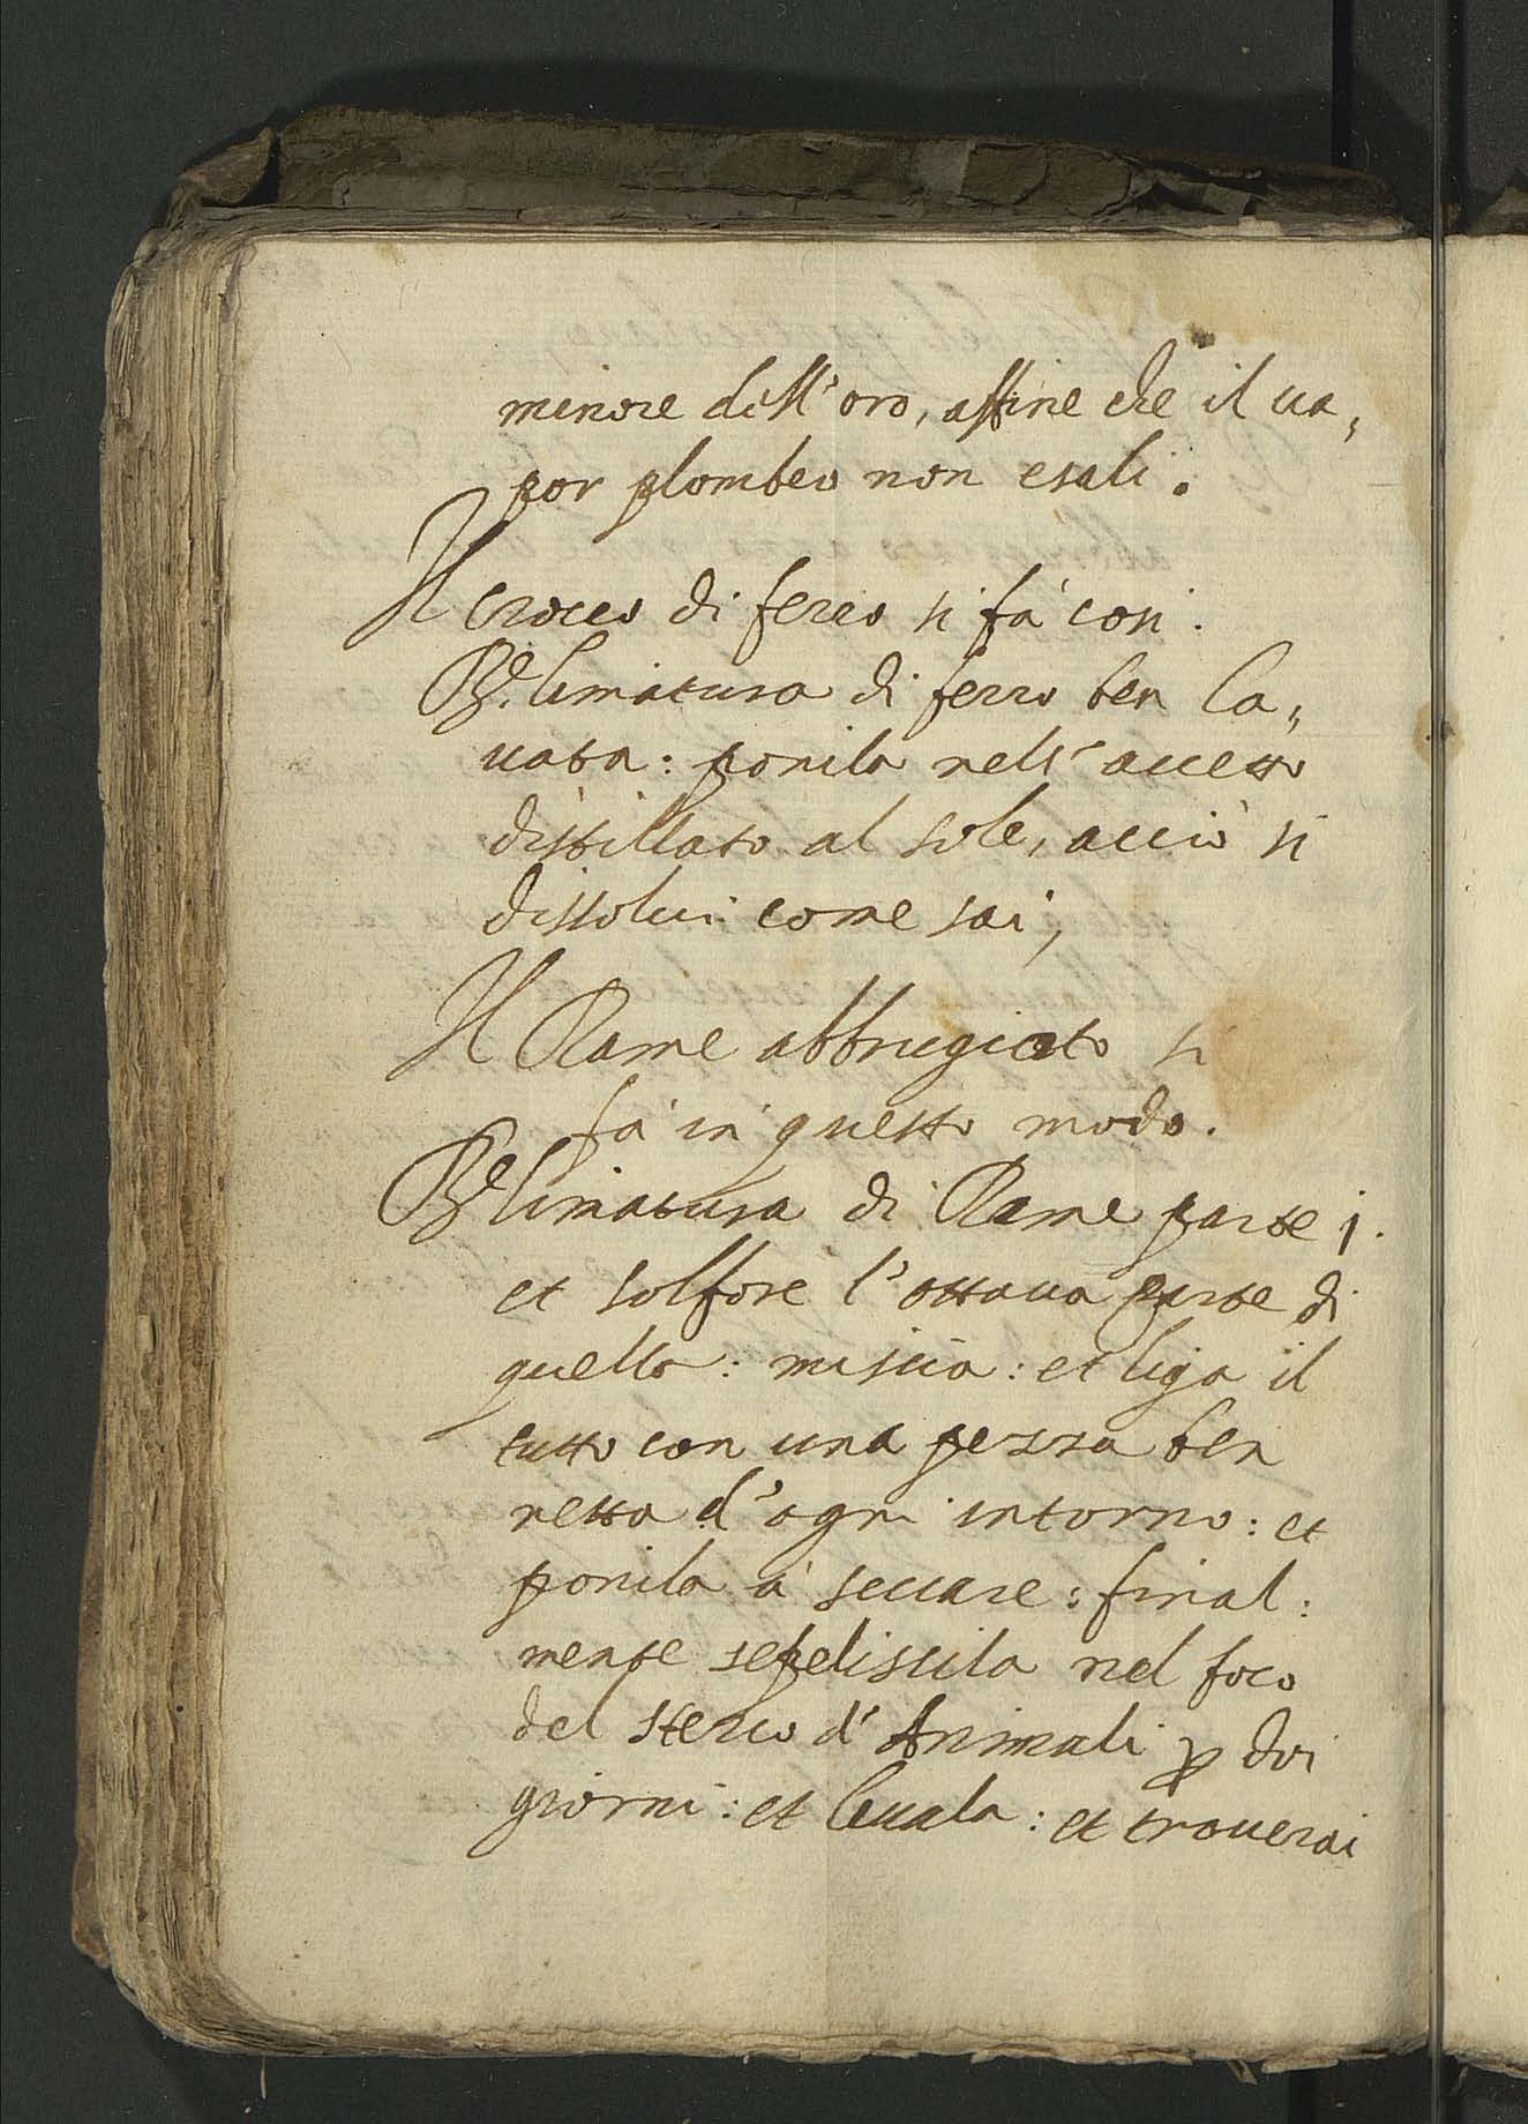 minore dell'oro, affine che il ua,
por plombeo non esali.
Il croceo di ferro si fà cosi.
Re. limatura di ferro ben la,
uata: ponila nell'aceto
distillato al sole, acciò si
dissolui come sai,
Il Rame abbrugiato si
fà in questo modo.
Re limatura di Rame parte j.
et solfore l'ottaua parte di
quello: miscia: et liga il
tutto con una pezza ben
netta d'ogni intorno: et
ponila à seccare: final:
mente sepeliscila nel foco
del sterco d'Animali ꝑ doi
giorni: et leuala: et trouerai